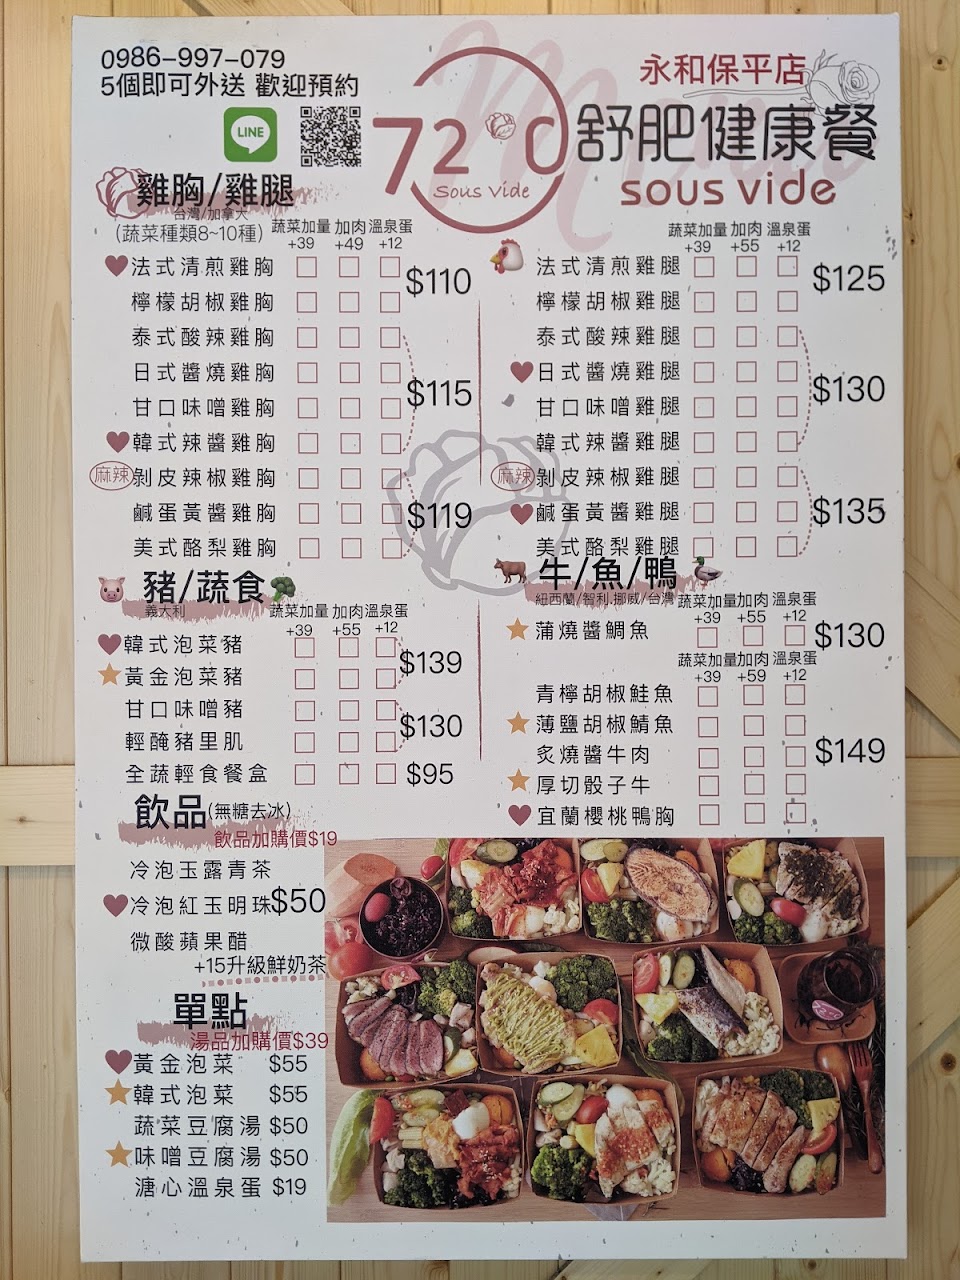 0986-997-079
5個即可外送 歡迎預約
LINE
72°C
Sous Vide
Menu
永和保平店
舒肥健康餐
sous vide
雞胸/雞腿
台灣/加拿大
(蔬菜種類8~10種)
蔬菜加量 加肉 溫泉蛋
+39 +49 +12
法式清煎雞胸
檸檬胡椒雞胸
$110
泰式酸辣雞胸
日式醬燒雞胸
甘口味噌雞胸
韓式辣醬雞胸
$115
麻辣 剝皮辣椒雞胸
鹹蛋黃醬雞胸
美式酪梨雞胸
$119
蔬菜加量 加肉 溫泉蛋
+39 +55 +12
法式清煎雞腿
檸檬胡椒雞腿
$125
泰式酸辣雞腿
日式醬燒雞腿
甘口味噌雞腿
韓式辣醬雞腿
$130
麻辣 剝皮辣椒雞腿
鹹蛋黃醬雞腿
美式酪梨雞腿
$135
豬/蔬食
義大利
蔬菜加量 加肉 溫泉蛋
+39 +55 +12
韓式泡菜豬
黃金泡菜豬
$139
甘口味噌豬
輕醃豬里肌
$130
全蔬輕食餐盒 $95
牛/魚/鴨
紐西蘭/智利.挪威/台灣
蔬菜加量 加肉 溫泉蛋
+39 +55 +12
蒲燒醬鯛魚 $130
蔬菜加量 加肉 溫泉蛋
+39 +59 +12
青檸胡椒鮭魚
薄鹽胡椒鯖魚
炙燒醬牛肉
厚切骰子牛
宜蘭櫻桃鴨胸
$149
飲品(無糖去冰)
飲品加購價$19
冷泡玉露青茶
冷泡紅玉明珠 $50
微酸蘋果醋
+15升級鮮奶茶
單點
湯品加購價$39
黃金泡菜 $55
韓式泡菜 $55
蔬菜豆腐湯 $50
味噌豆腐湯 $50
溏心溫泉蛋 $19